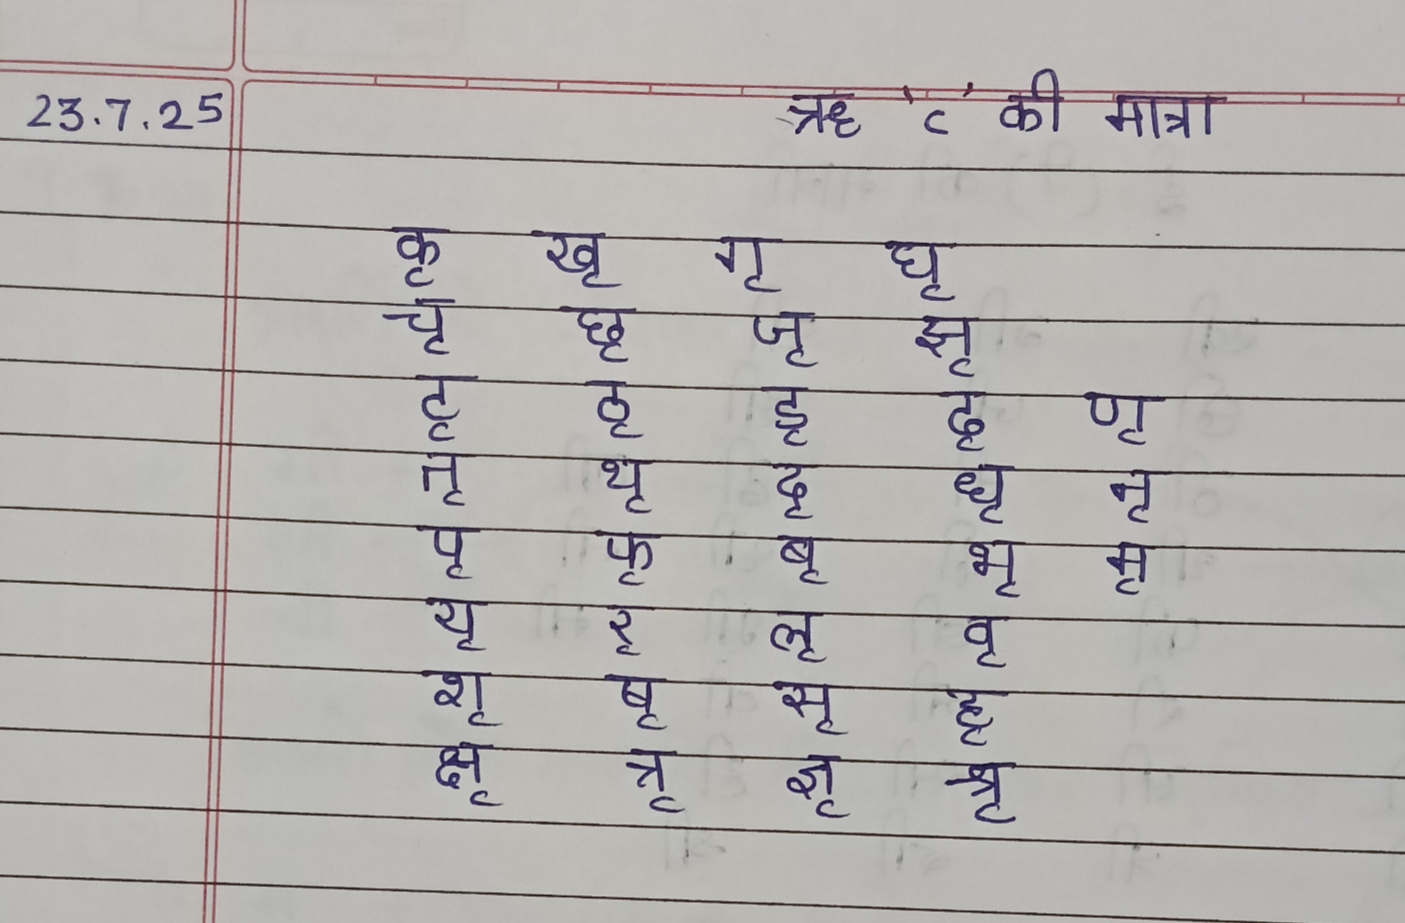 23.7.25 ऋ 'ृ' की मात्रा
कृ खृ गृ घृ
चृ छृ जृ झृ
टृ ठृ डृ ढृ णृ
तृ थृ दृ धृ नृ
पृ फृ बृ भृ मृ
यृ रृ लृ वृ
शृ षृ सृ हृ
क्षृ त्रृ ज्ञृ श्रृ